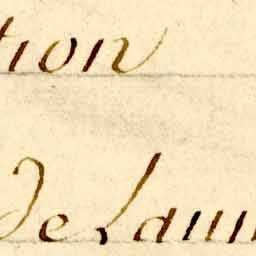 tion
de Laun